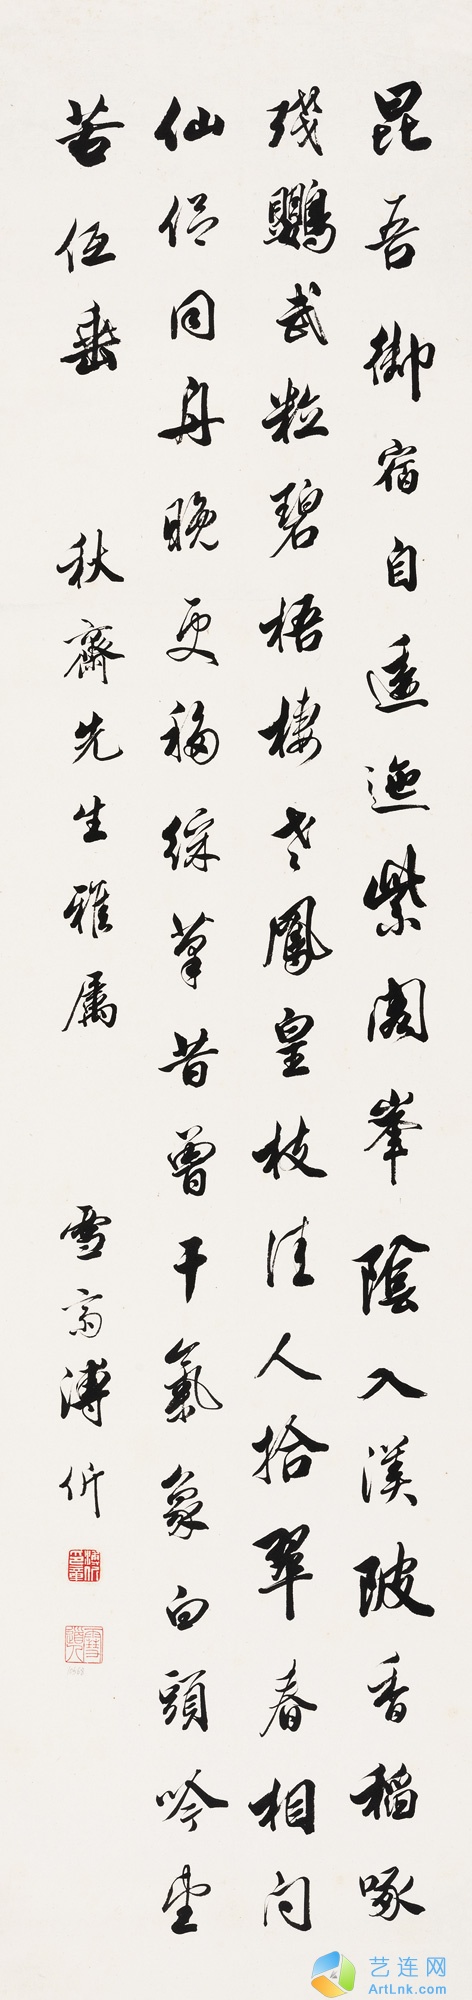 昆吾御宿自逶迤紫閣峯陰入渼陂香稻啄
殘鸚武粒碧梧棲老鳳皇枝佳人拾翠春相问
仙侣同舟晚更移綵筆昔曾干氣象白頭吟望
苦低垂 秋齋先生雅屬 雪齋溥伒
艺连网
ArtLnk.com